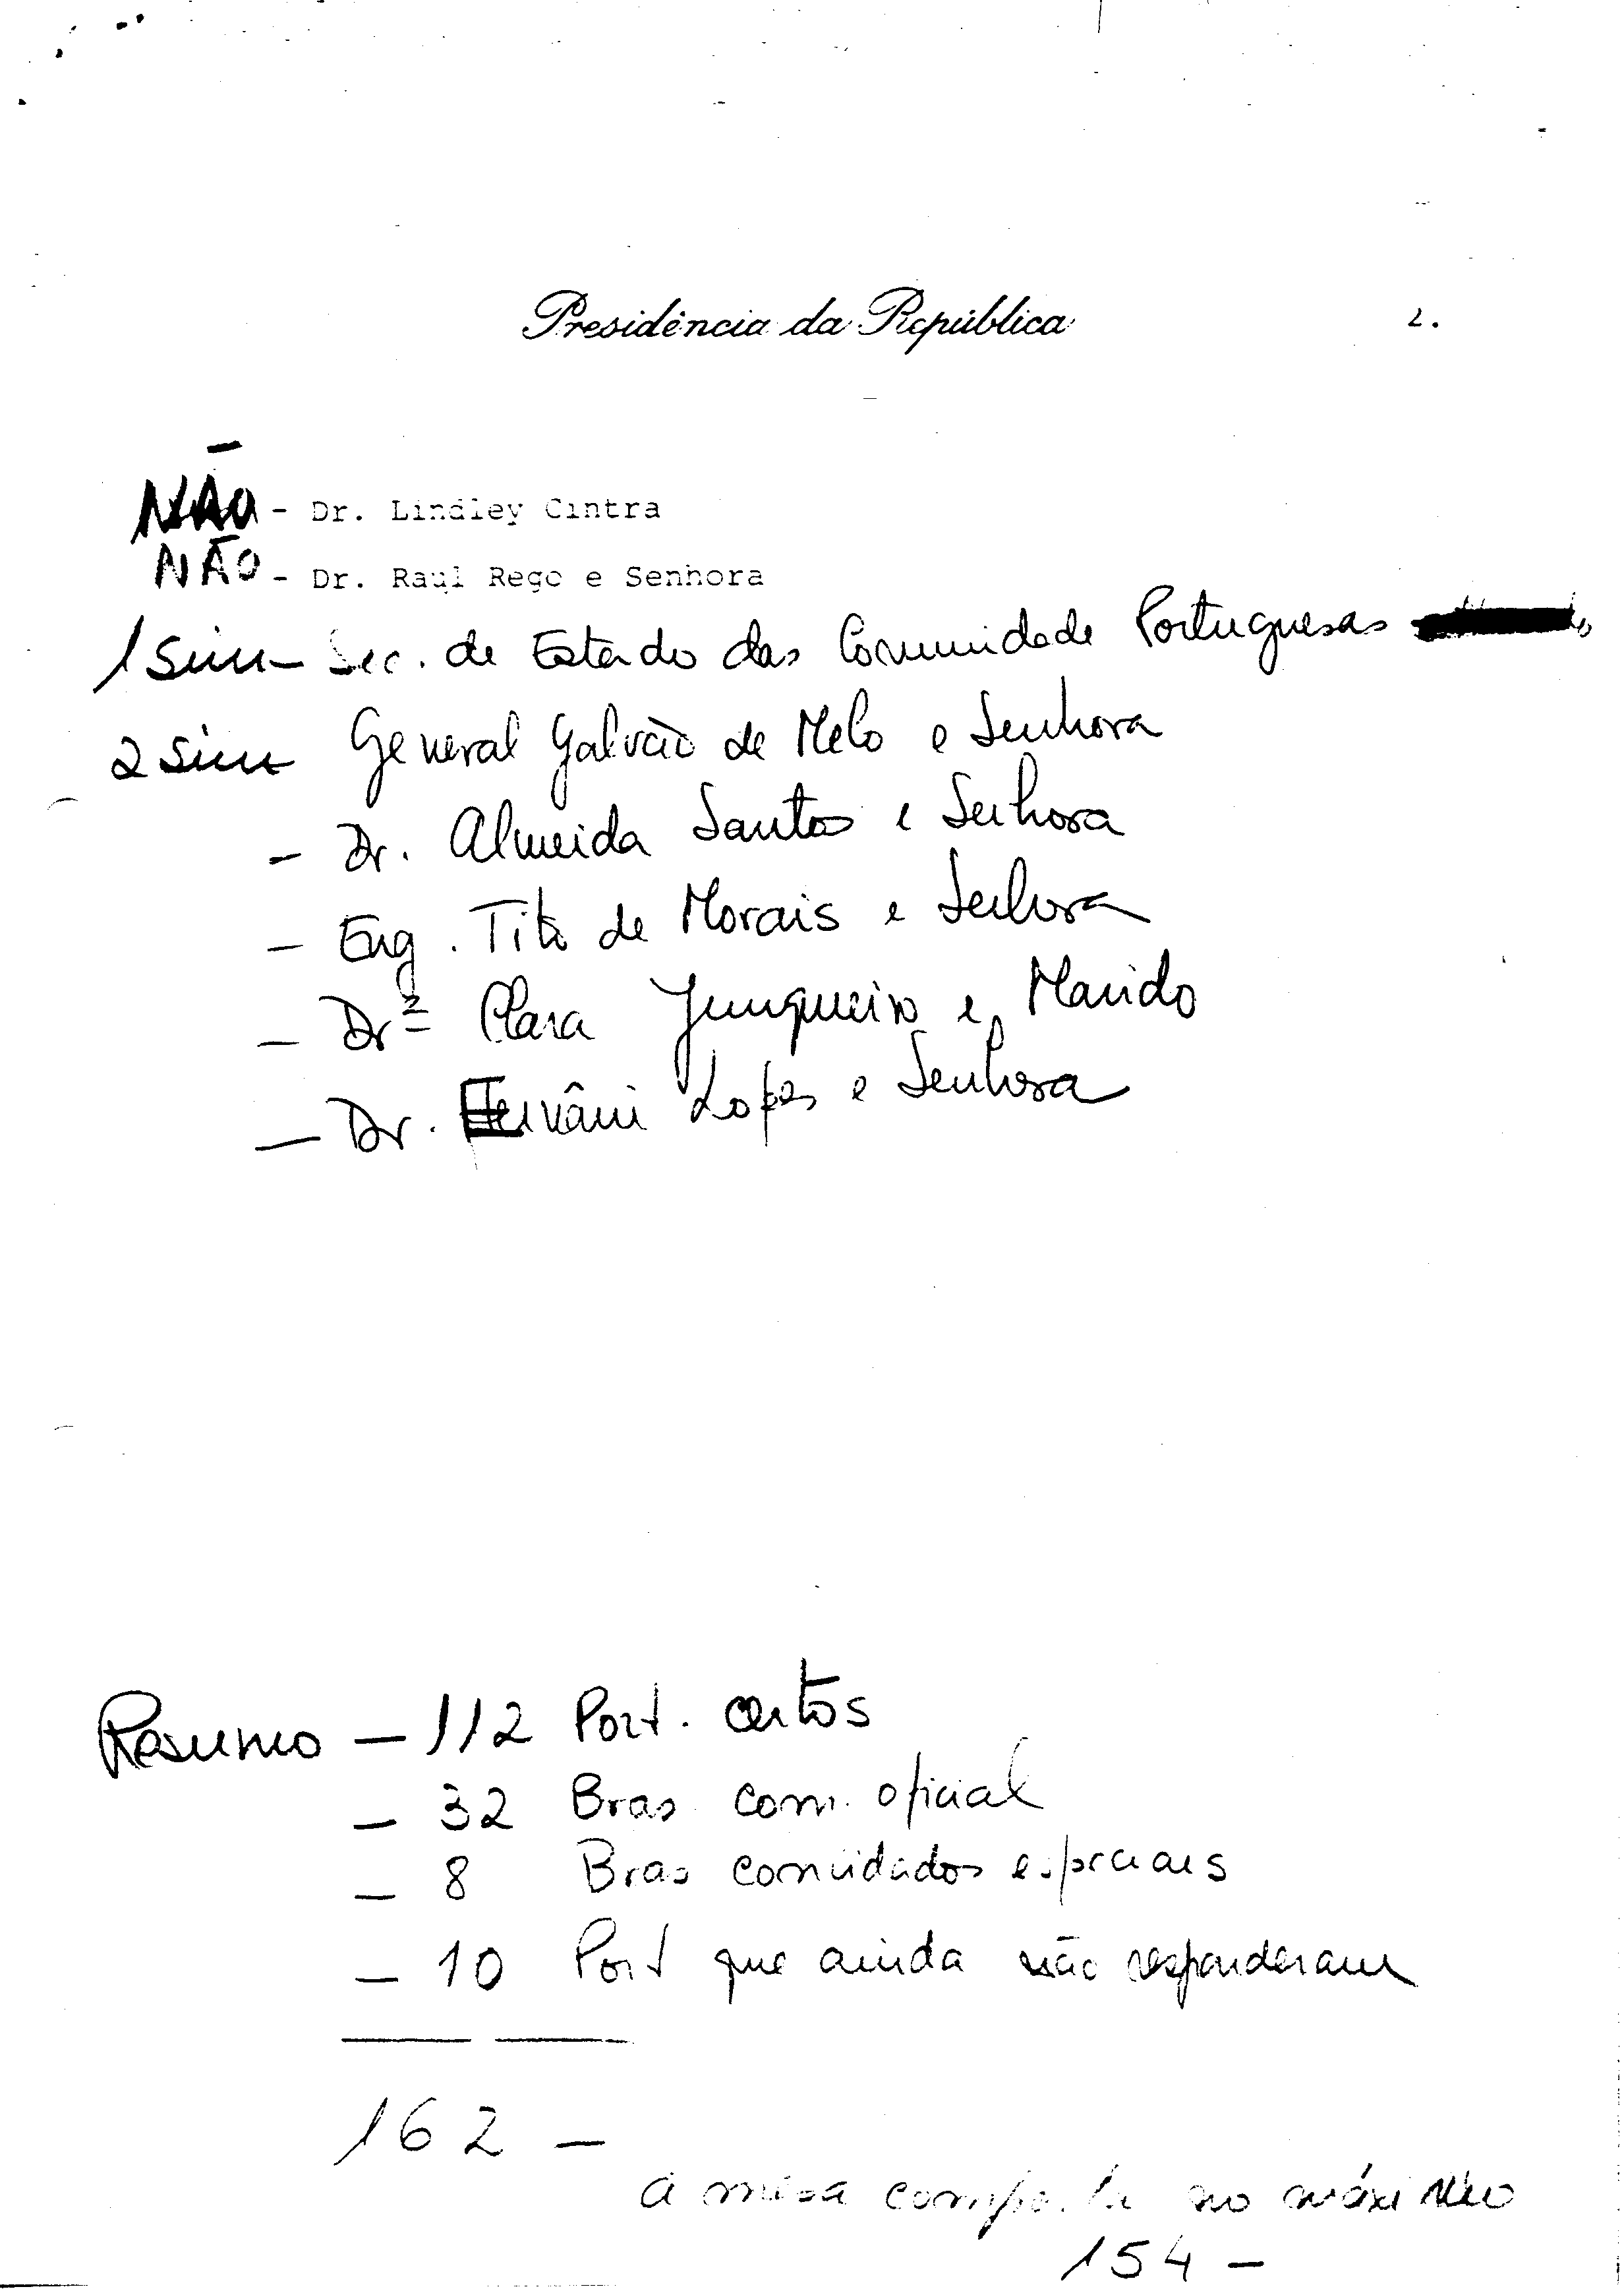 Presidência da República 2.
NÃO - Dr. Lindley Cintra
NÃO - Dr. Raúl Rego e Senhora
1 Sim - Sec. de Estado das Comunidade Portuguesas
2 sim General Galvão de Melo e Senhora
- Dr. Almeida Santos e Senhora
- Eng. Tito de Morais e Senhora
- Drª Clara Junqueiro e Marido
- Dr. Ernâni Lopes e Senhora
Resumo - 112 Port. certos
- 32 Bras com. oficial
- 8 Bras convidados especiais
- 10 Port que ainda não responderam
162 -
a mesa comporta no máximo
154 -